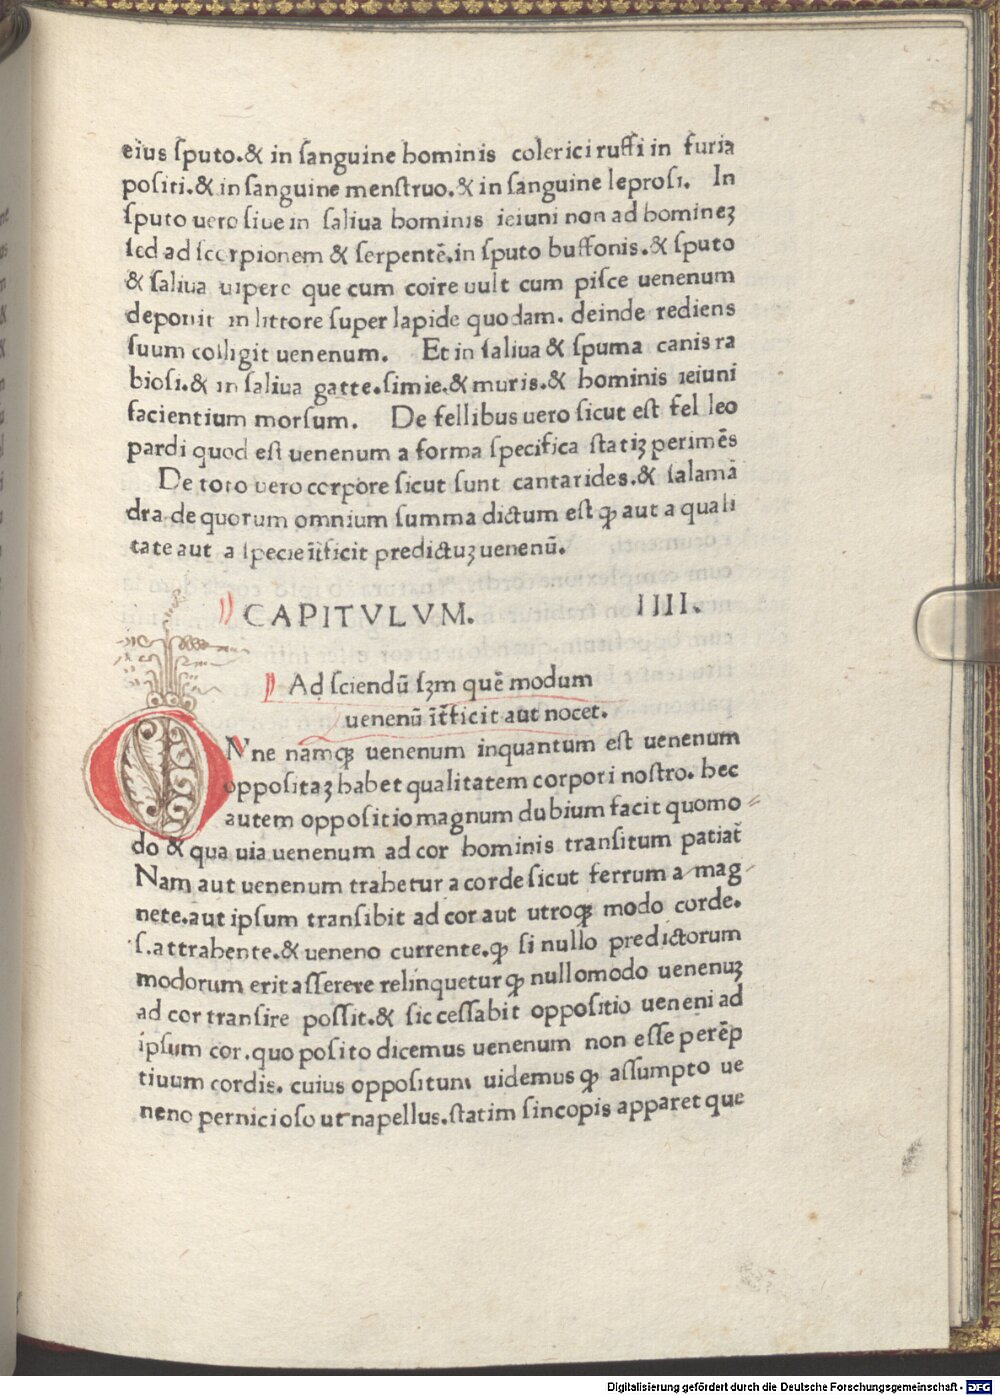 eius ſputo.& in ſanguine hominis colerici ruffi in furia
poſiti.& in ſanguine menſtruo.& in ſanguine leproſi. In
ſputo uero ſiue in ſaliua hominis ieiuni non ad homineꝫ
ſed ad ſcorpionem & ſerpentē.in ſputo buffonis.& ſputo
& ſaliua uipere que cum coire uult cum piſce uenenum
deponit in littore ſuper lapide quodam. deinde rediens
ſuum colligit uenenum. Et in ſaliua & ſpuma canis ra
bioſi.& in ſaliua gatte.ſimie.& muris.& hominis ieiuni
facientium morſum. De fellibus uero ſicut eſt fel leo
pardi quod eſt uenenum a forma ſpecifica ſtatiꝫ perimēs
De toto uero corpore ſicut ſunt cantarides.& ſalamā
dra de quorum omnium ſumma dictum eſt ꝙ aut a quali
tate aut a ſpecie īterficit predictuꝫ uenenū.
CAPITVLVM. IIII.
Ad ſciendū ſꝫm quē modum
uenenū īterficit aut nocet.
ONne namqꝫ uenenum inquantum eſt uenenum
oppoſitaꝫ habet qualitatem corpori noſtro. hec
autem oppoſitio magnum dubium facit quomo
do & qua uia uenenum ad cor hominis tranſitum patiat̄
Nam aut uenenum trahetur a corde ſicut ferrum a mag
nete.aut ipſum tranſibit ad cor aut utroqꝫ modo corde.
ſ.attrahente.& ueneno currente.ꝙ ſi nullo predictorum
modorum erit aſſerere relinquetur ꝙ nullomodo uenenuꝫ
ad cor tranſire poſſit.& ſic ceſſabit oppoſitio ueneni ad
ipſum cor.quo poſito dicemus uenenum non eſſe perēp
tiuum cordis. cuius oppoſitum uidemus ꝙ aſſumpto ue
neno pernicioſo ut napellus.ſtatim ſincopis apparet que
Digitalisierung gefördert durch die Deutsche Forschungsgemeinschaft - DFG